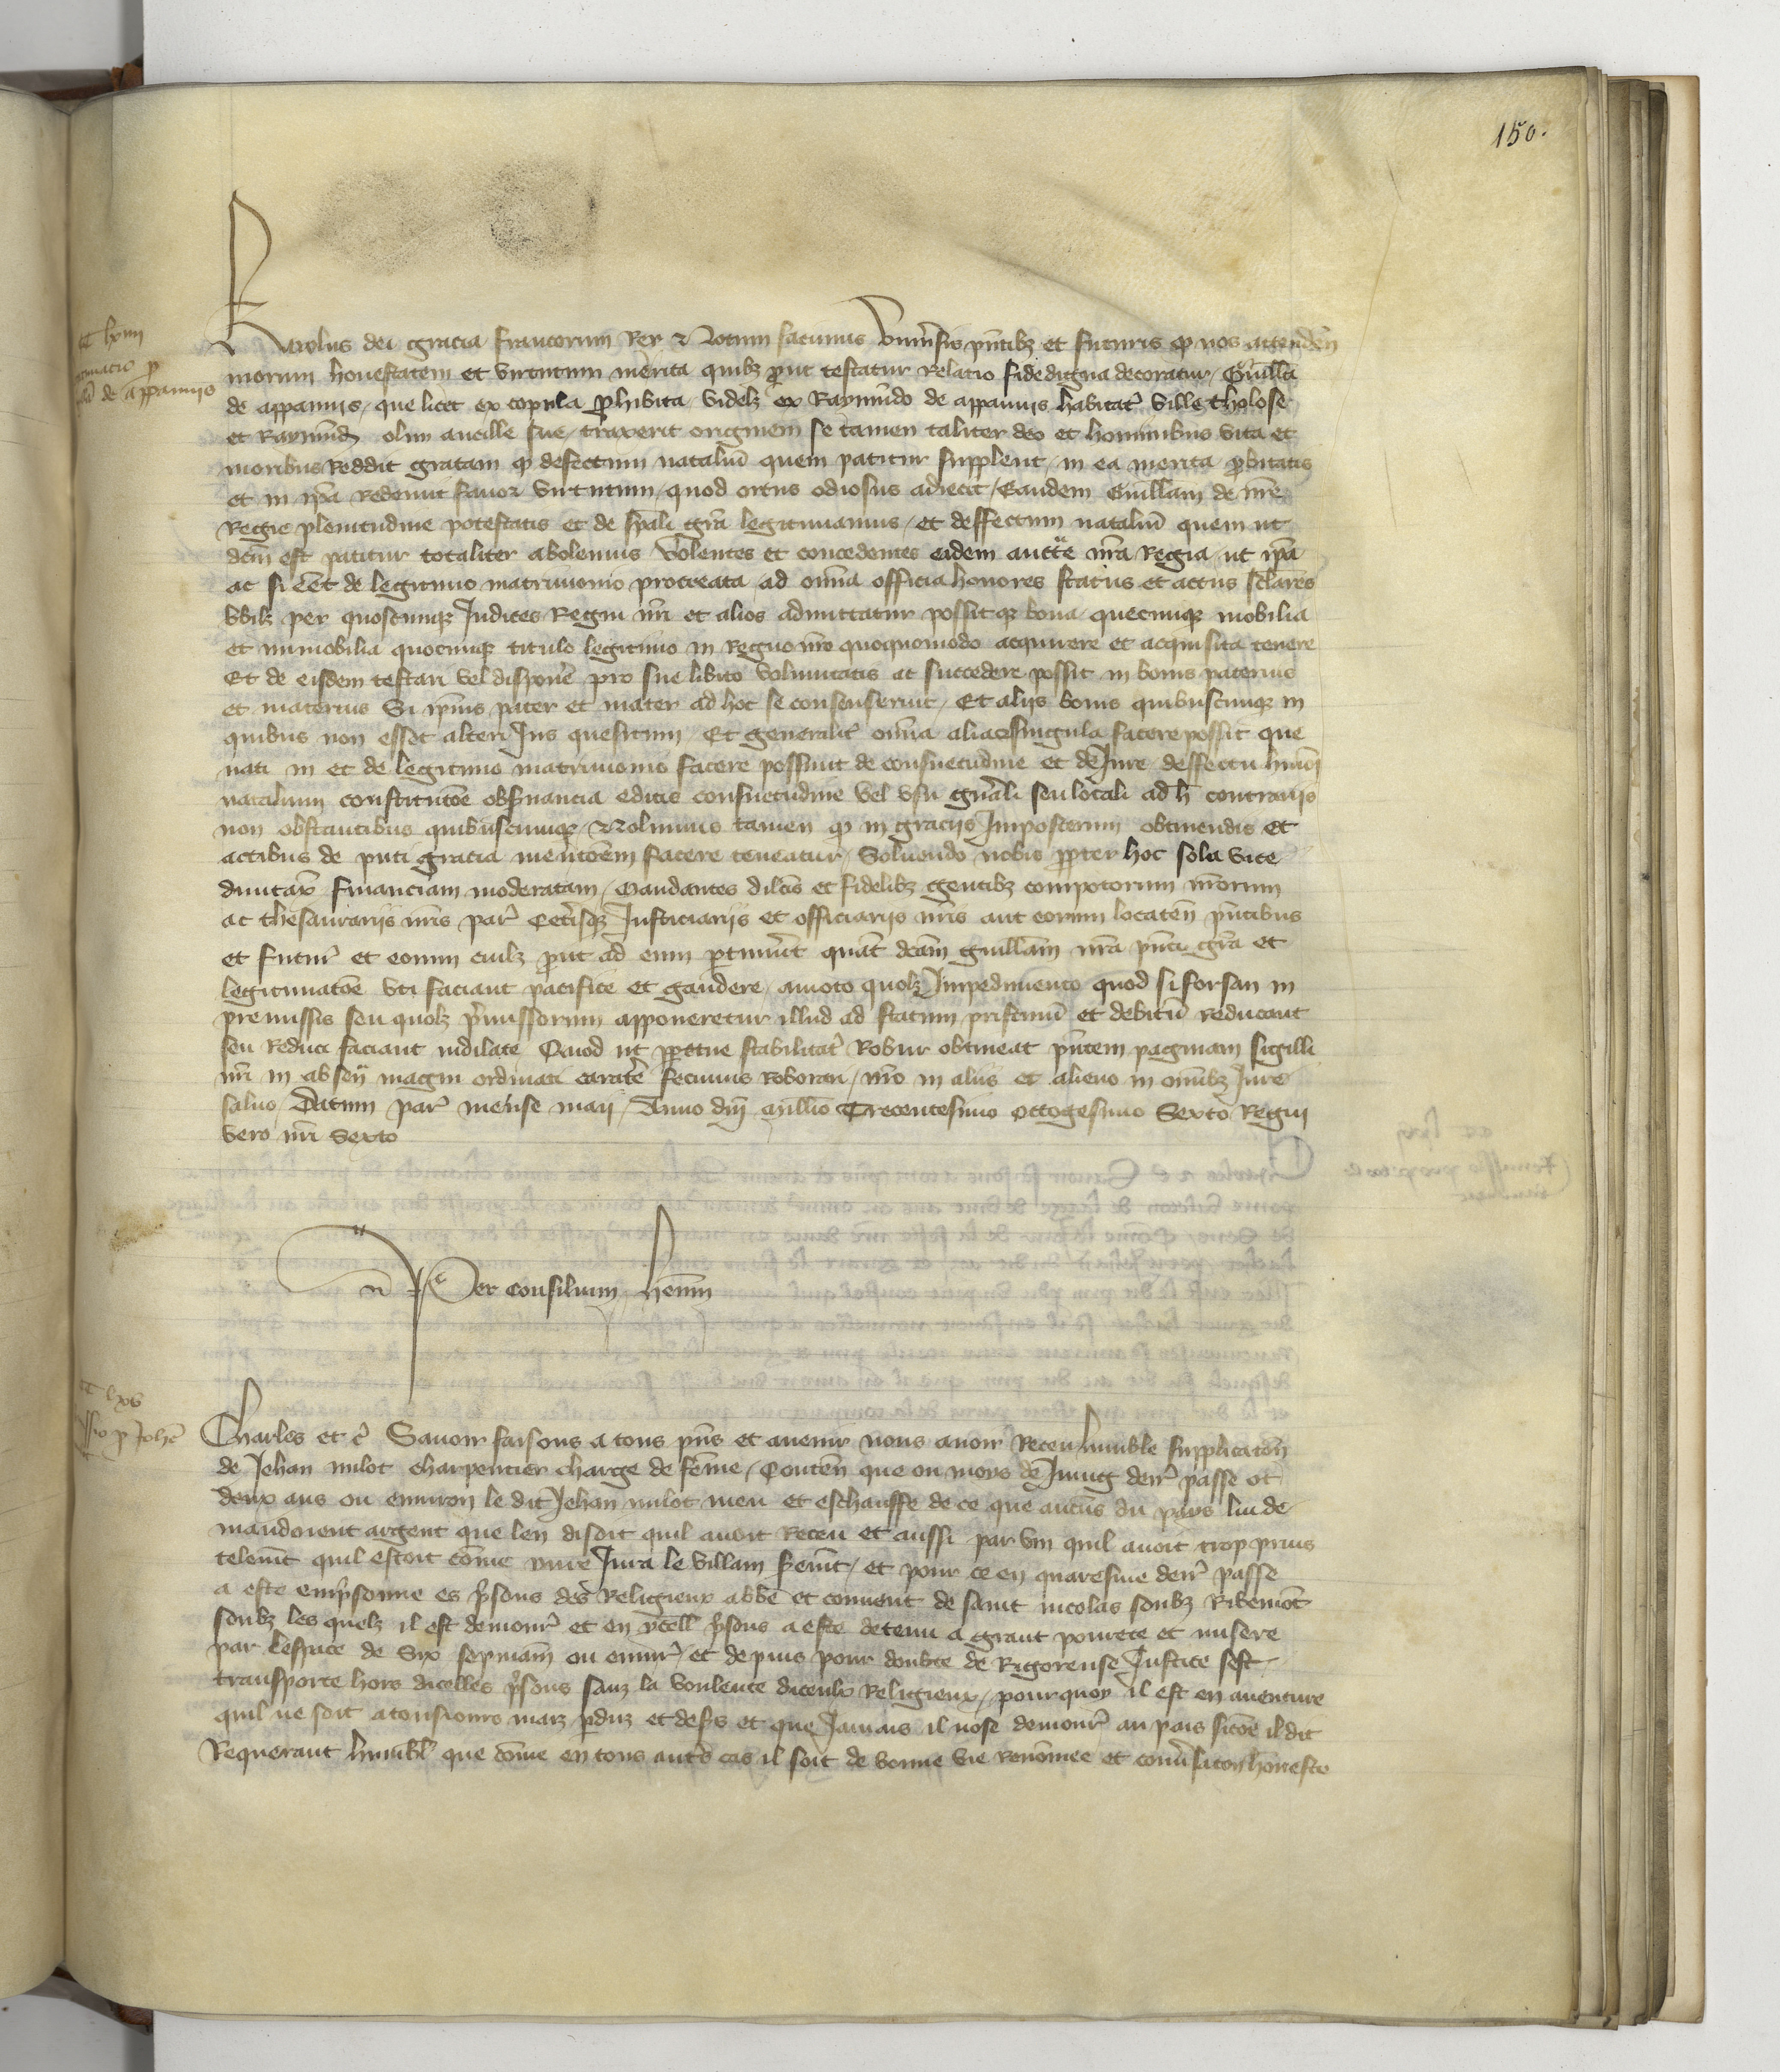 150.
Karolus dei gracia francorum Rex Notum facimus Univsis pntibz et futuris q nos attenden
c lxiiii
morum honestatem et virtutum merita quibz prout testatur relatio fidedigna decoratur Guillā
de appamiis
de appamiis que licet ex copula phibita videlz ex Raymūdo de appamiis habitatr ville tholose
et Raymūdā olim ancille sue traxerit originem se tamen taliter deo et hominibus vita et
moribus Reddit gratam q defectum nataliū quem patitur supplent in ea merita pbitatis
et in ipā Redemit favor virtutum quod ortus odiosus adiecit Eandem Guillam de nrē
Regie plenitudine potestatis et de spāli grā legitimamus et deffectum nataliū quem ut
dcm est patitur totaliter abolemus Volentes et concedentes eidem auctte nrā Regia ut ipā
ac si eet de legitimo matrimonio procreata ad omia officia honores status et actus sclares
vbilz per quoscumqz Judices Regni nri et alios admittatur possitqz bona quecumqz mobilia
et immobilia quocumqz titulo legitimo in Regno nro quoquomodo acquirere et acquisita tenere
Et de eisdem testari vel disponē pro sue libito voluntatis ac succedere possit in bonis paternis
et maternis Si ipius pater et mater ad hoc se consenserint Et aliis bonis quibuscumqz in
quibus non esset alteri Jus quesitum Et generalit omia alia singula facere possit que
nati in et de legitimo matrimonio facere possunt de consuetudine et de Jure deffectu huiūoi
natalium constitutoē obsuancia edictis consuetudine vel usu gnāli seu locali ad h contrariis
non obstantibus quibuscumqz Volumus tamen q in graciis Imposterum obtinendis et
actibus de pnti gracia mentoēm facere teneatur Soluendo nobis ppter hoc sola vice
dumtax financiam moderatam Mandantes dilcis et fidelibz gentibz compotorum nrorum
ac thesaurariis nris par Ceterisqz Justiciariis et officiariis nris aut eorum locatēn pntibus
et futur et eorum cuilz prout ad eum ptinuit quat dcam guillam nrā pnti grā et
legitimatoē vti faciant pacifice et gaudere amoto quolz Impedimento quod si forsan in
premissis seu quolz pmissorum apponeretur illud ad statum pristinū et debitū Reducant
seu Reduci faciant indilate Quod ut ppetue stabilitat Robur obtineat pntem paginam sigilli
nri in absen magni ordinati caratē fecimus roborari nro in aliis et alieno in omibz Jure
salvo Datum par mense maii Anno dni millio Trecentesimo octogesimo Sexto Regni
vero nri Sexto
Per consilium
c lxv
Charles et c Savoir faisons a tous pns et avenir nous avoir Receu humble supplicaton
de Jehan milot charpentier charge de feme Conten que ou mois de Juing denr passe ot
deux ans ou environ le dit Jehan milot meu et eschauffe de ce que aucus du pays lui de
mandoient argent que len disoit quil avoit Receu et aussi par vin quil avoit trop prins
telemt quil estoit come yvre Jura le villain semt et pour ce en quaresme denr passe
a este emprisonne es prisons des Religieux abbe et couvent de saint nicolas soubz Ribemōt
soubz les quelz il est demour et en ycell prisons a este detenu a grant povrete et misere
par lespace de Six sepmain ou envir et depuis pour doubte de Rigoreuse Justice sest
transporte hors dicelles prisons sanz la voulente diceulx Religieux pourquoy il est en aventure
quil ne soit a tousiours maiz pduz et defrs et que Jamais il nose demour au pais sicōe il dit
Requerant humbl que come en tous autrs cas il soit de bonne vie renōmee et conusaton honeste